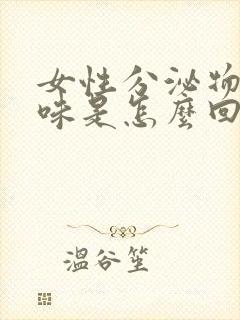 女性分泌物
味是怎麼回
溫谷笙